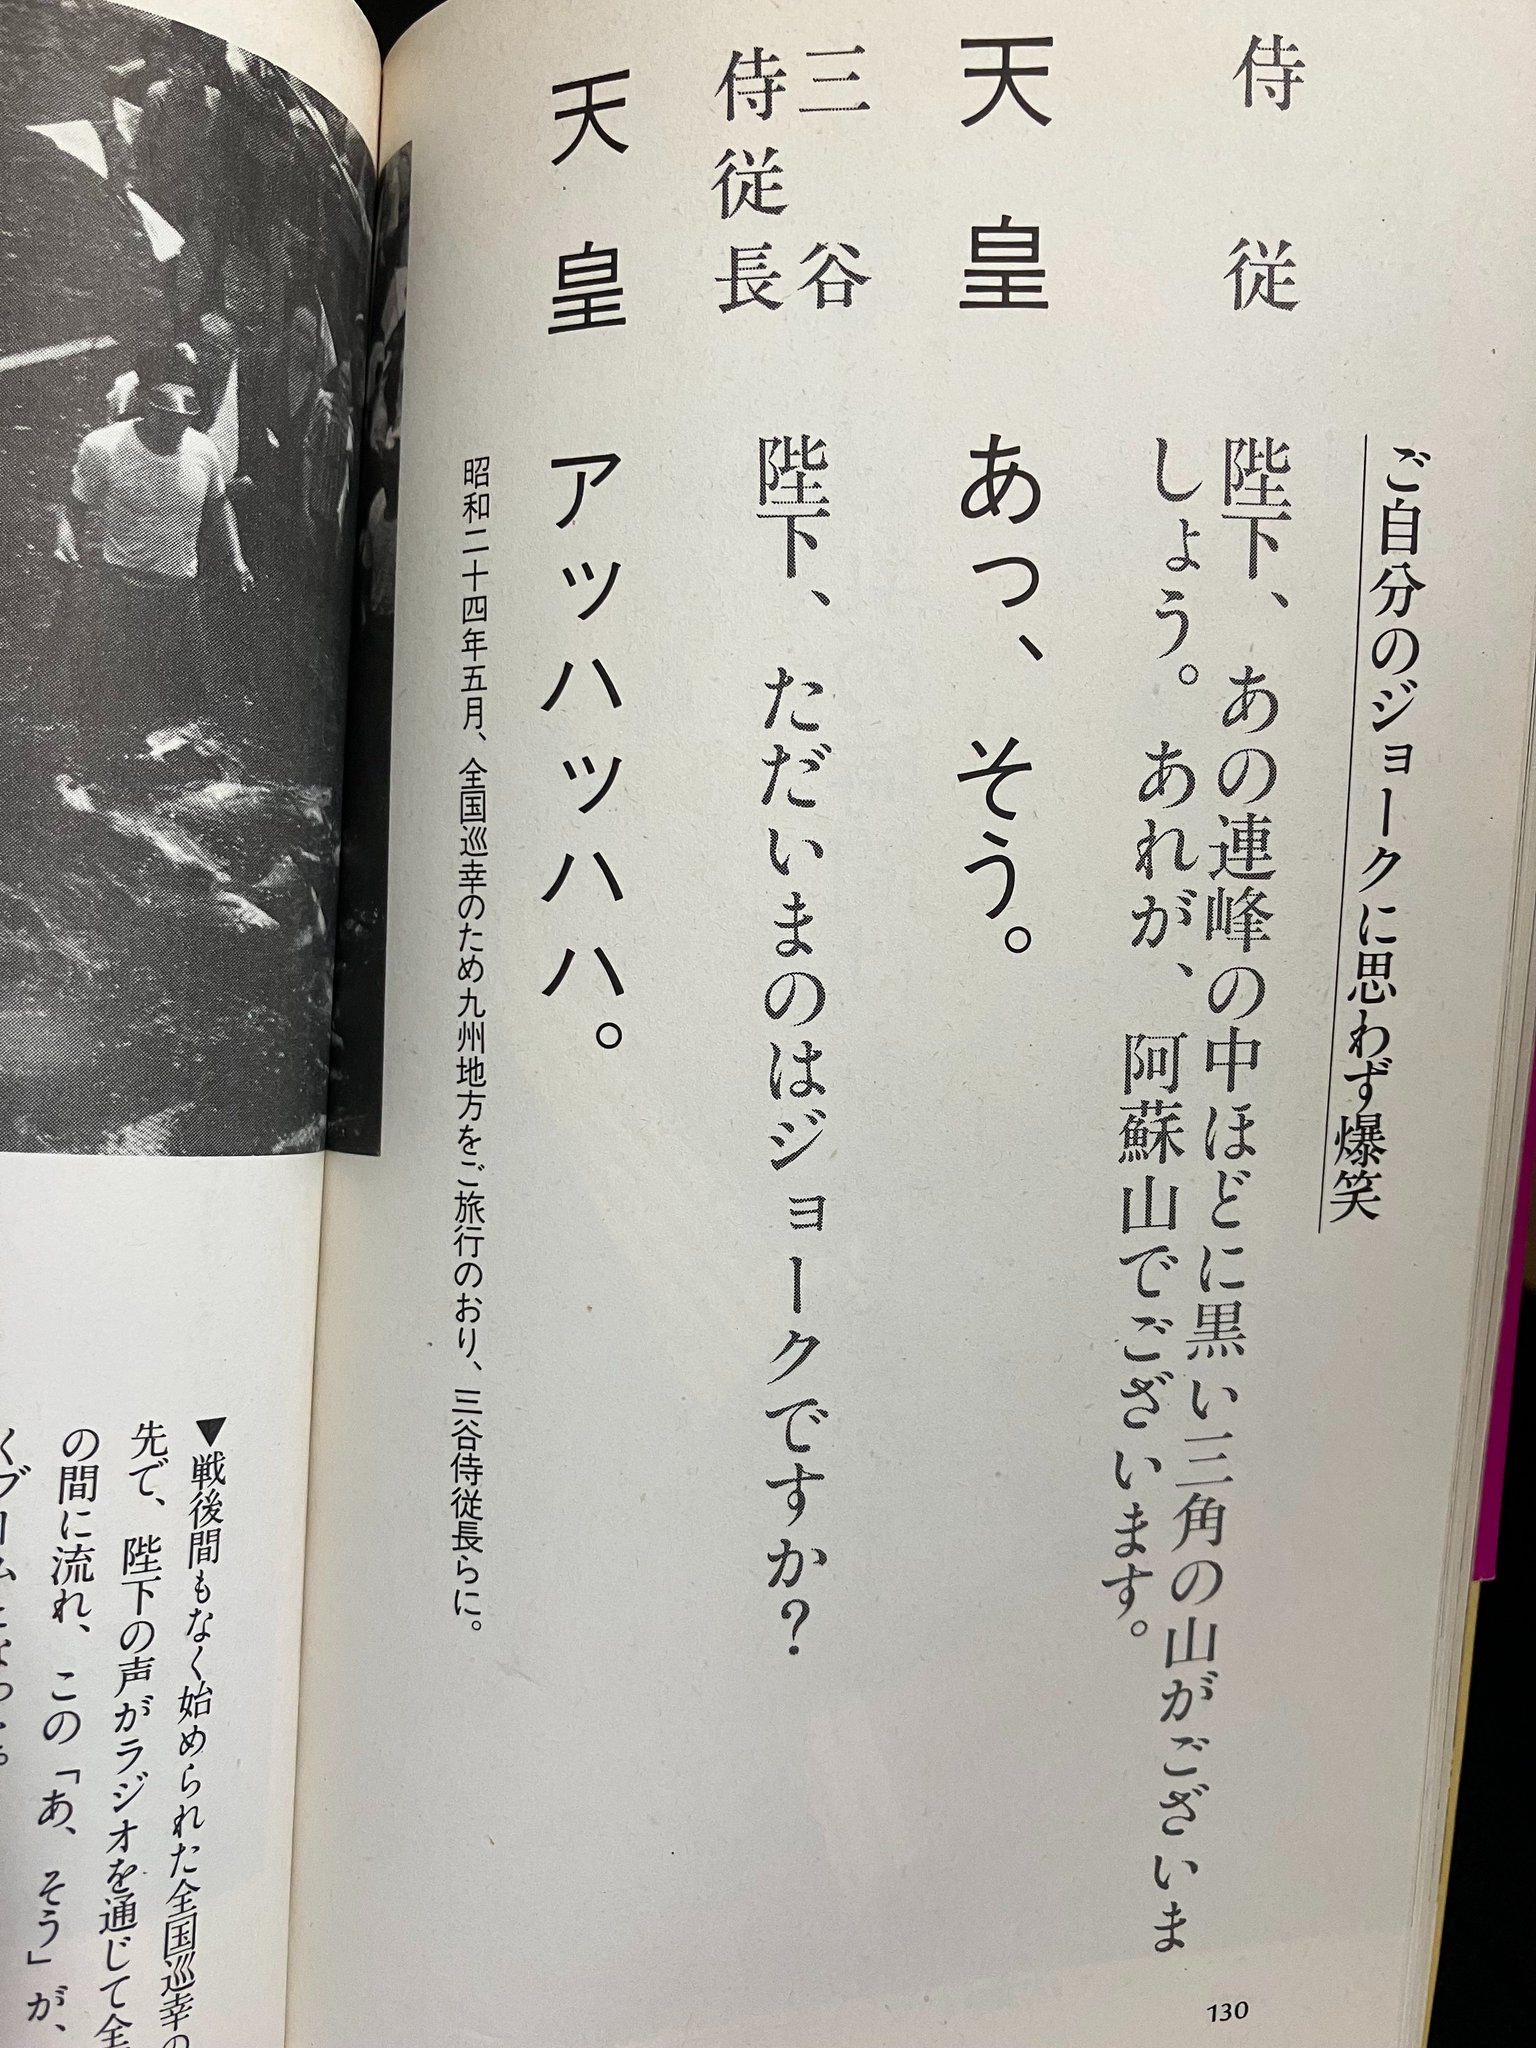 ご自分のジョークに思わず爆笑
侍従 陛下、あの連峰の中ほどに黒い三角の山がございま
しょう。あれが、阿蘇山でございます。
天皇 あっ、そう。
三谷
侍従長 陛下、ただいまのはジョークですか?
天皇 アッハッハハ。
昭和二十四年五月、全国巡幸のため九州地方をご旅行のおり、三谷侍従長らに。
130
▼戦後間もなく始められた全国巡幸の
先で、陛下の声がラジオを通じて全
の間に流れ、この「あ、そう」が、